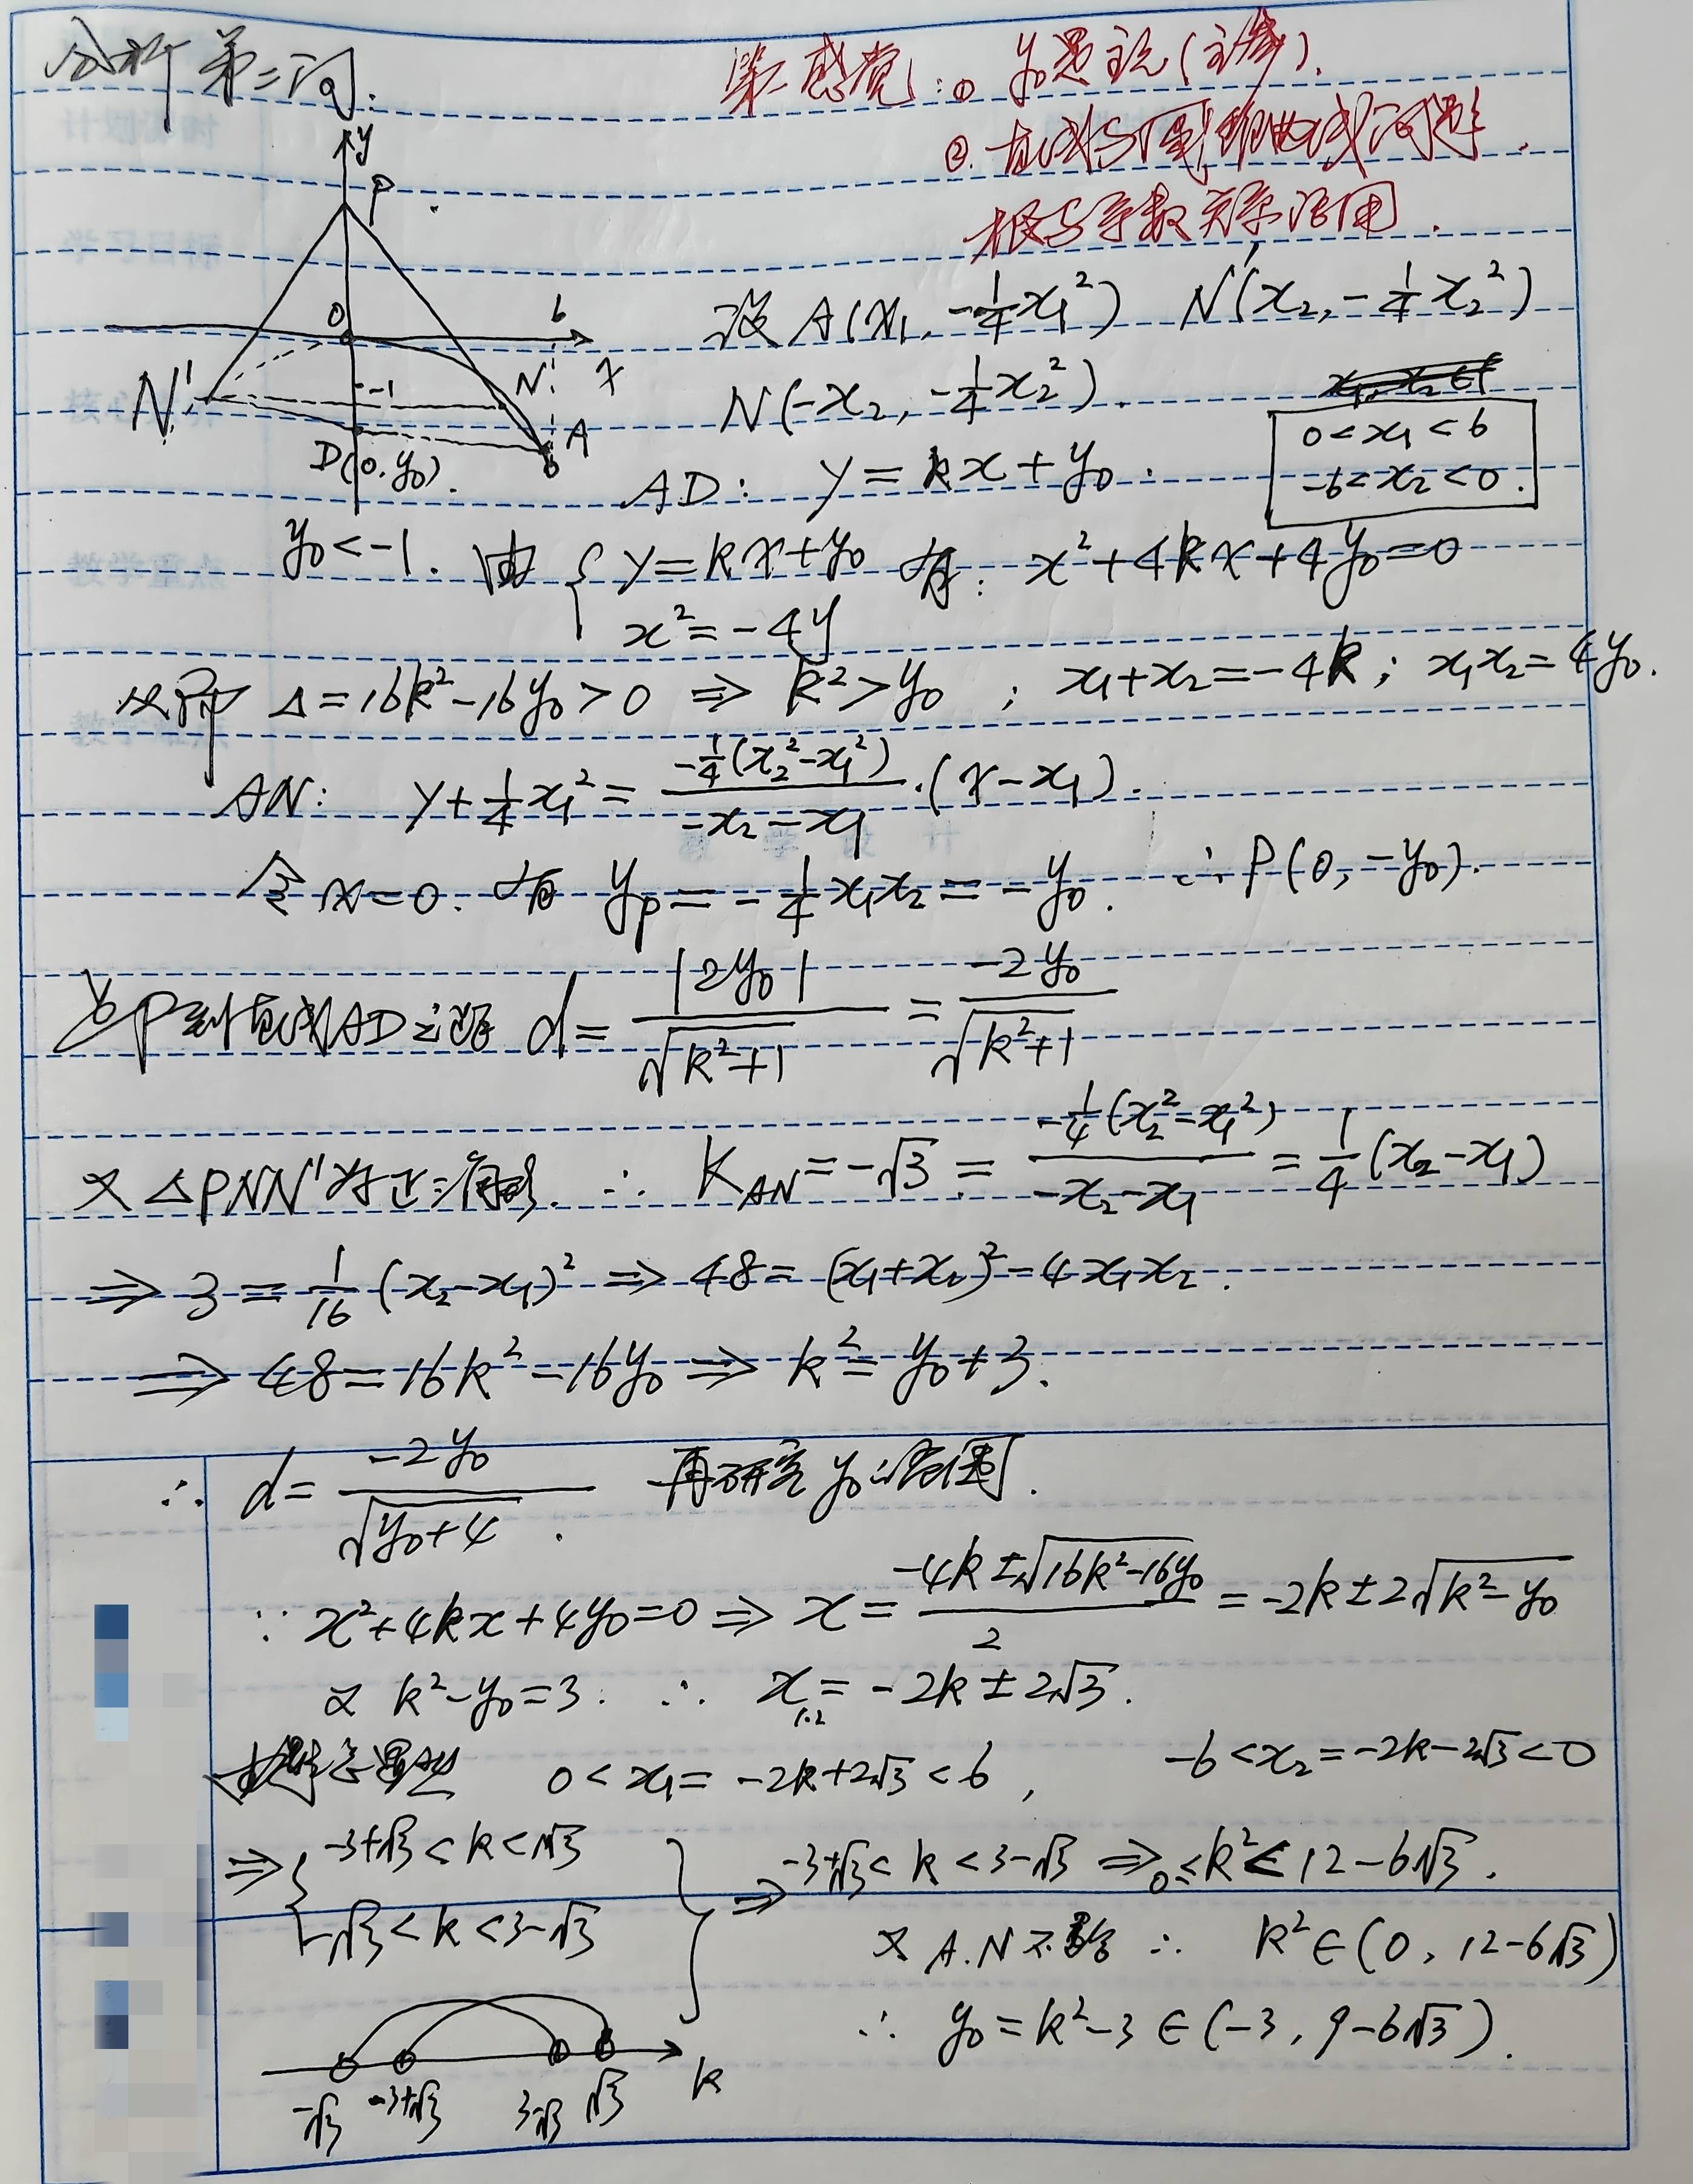 分析第二问:
第一感觉:① y₀是主元(主参).
② 直线与圆锥曲线问题.
根与系数关系活用.
y
P
0
6
x
N'
-1
N
A
D(0,y₀).
设 A(x₁, -1/4 x₁²) N'(x₂, -1/4 x₂²)
N(-x₂, -1/4 x₂²).
0<x₁<6
-6<x₂<0.
AD: y=kx+y₀.
y₀<-1. 由 { y=kx+y₀ 有: x²+4kx+4y₀=0
x²=-4y
Δ=16k²-16y₀>0 ⇒ k²>y₀ ; x₁+x₂=-4k; x₁x₂=4y₀.
AN: y+1/4 x₁² = (-1/4(x₂²-x₁²))/(-x₂-x₁)·(x-x₁).
令x=0. 有 yₚ=-1/4 x₁x₂=-y₀. ∴P(0,-y₀).
P到直线AD之距 d=|2y₀|/√(k²+1) = -2y₀/√(k²+1)
又△PNN'为正三角形. ∴ K_AN=-√3 = (-1/4(x₂²-x₁²))/(-x₂-x₁) = 1/4(x₂-x₁)
⇒ 3=1/16(x₂-x₁)² ⇒ 48=(x₁+x₂)²-4x₁x₂.
⇒ 48=16k²-16y₀ ⇒ k²=y₀+3.
∴ d=-2y₀/√(y₀+4). 再研究y₀之范围.
∵ x²+4kx+4y₀=0 ⇒ x=(-4k±√(16k²-16y₀))/2 = -2k±2√(k²-y₀)
又 k²-y₀=3. ∴ x₁,₂=-2k±2√3.
0<x₁=-2k+2√3<6, -6<x₂=-2k-2√3<0
⇒ { -3+√3<k<√3
-√3<k<3-√3 } ⇒ -3+√3<k<3-√3 ⇒ 0≤k²<12-6√3.
又A.N不重合 ∴ k²∈(0, 12-6√3)
∴ y₀=k²-3∈(-3, 9-6√3).
-√3 -3+√3 3-√3 √3 k